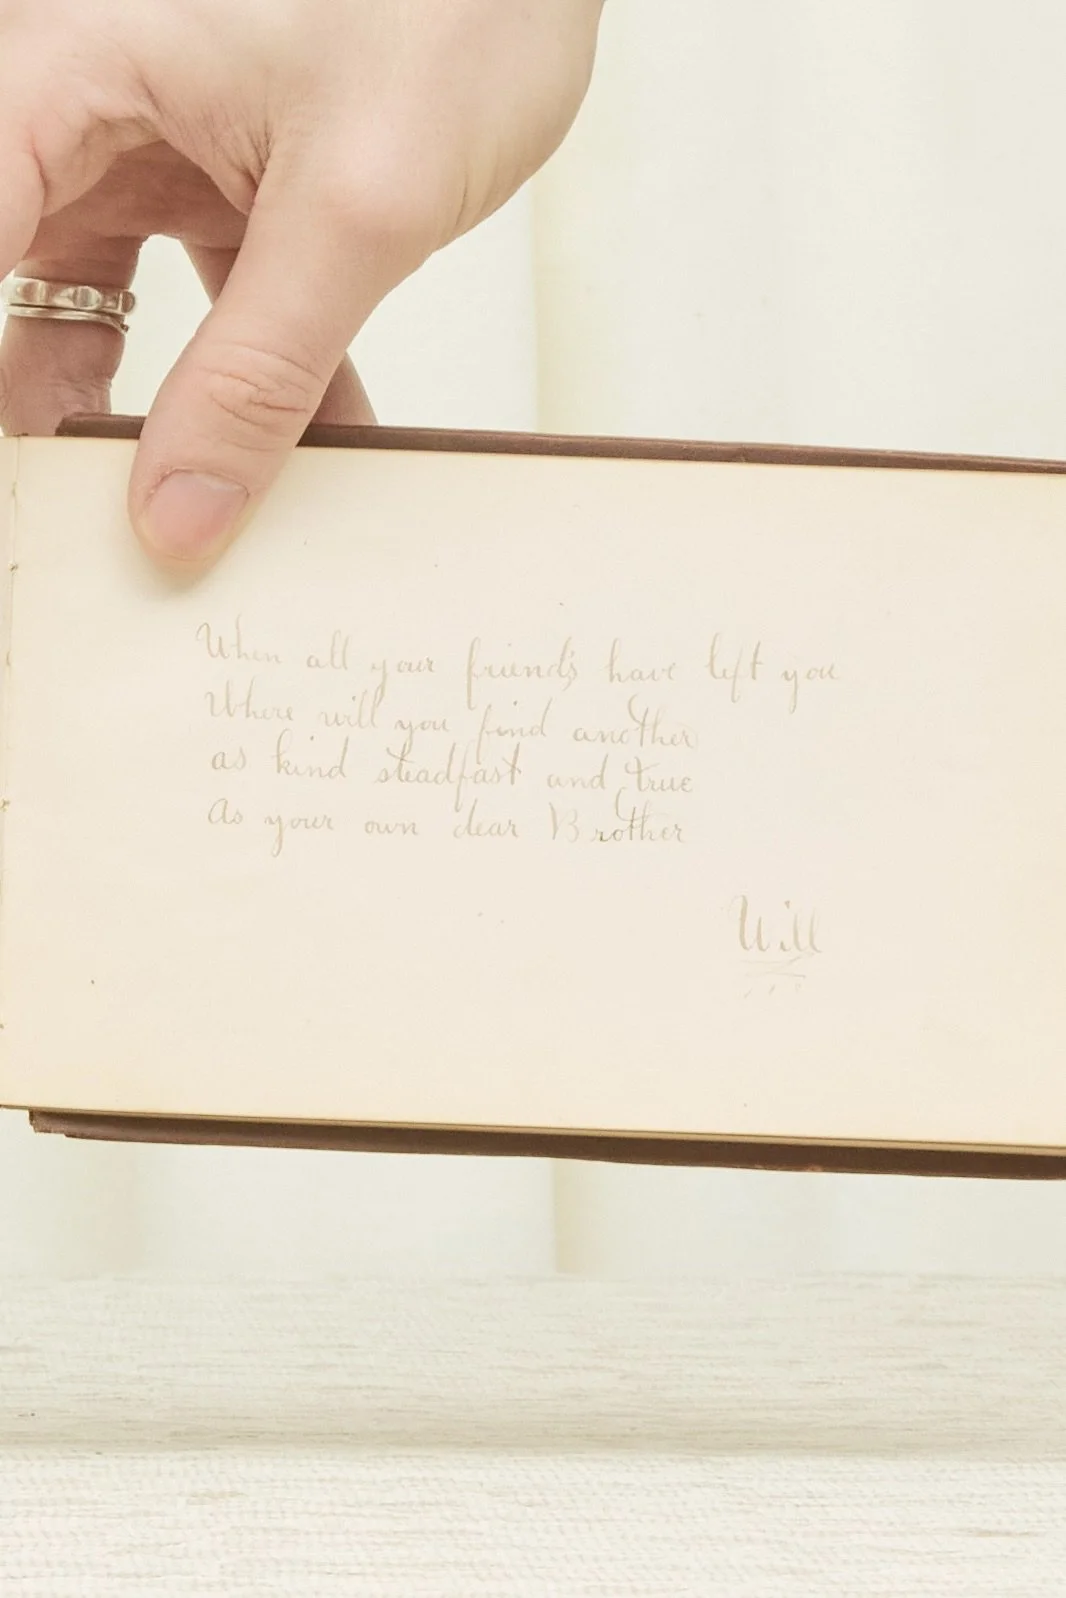 When all your friends have left you
Where will you find another
as kind steadfast and true
As your own dear Brother
Will